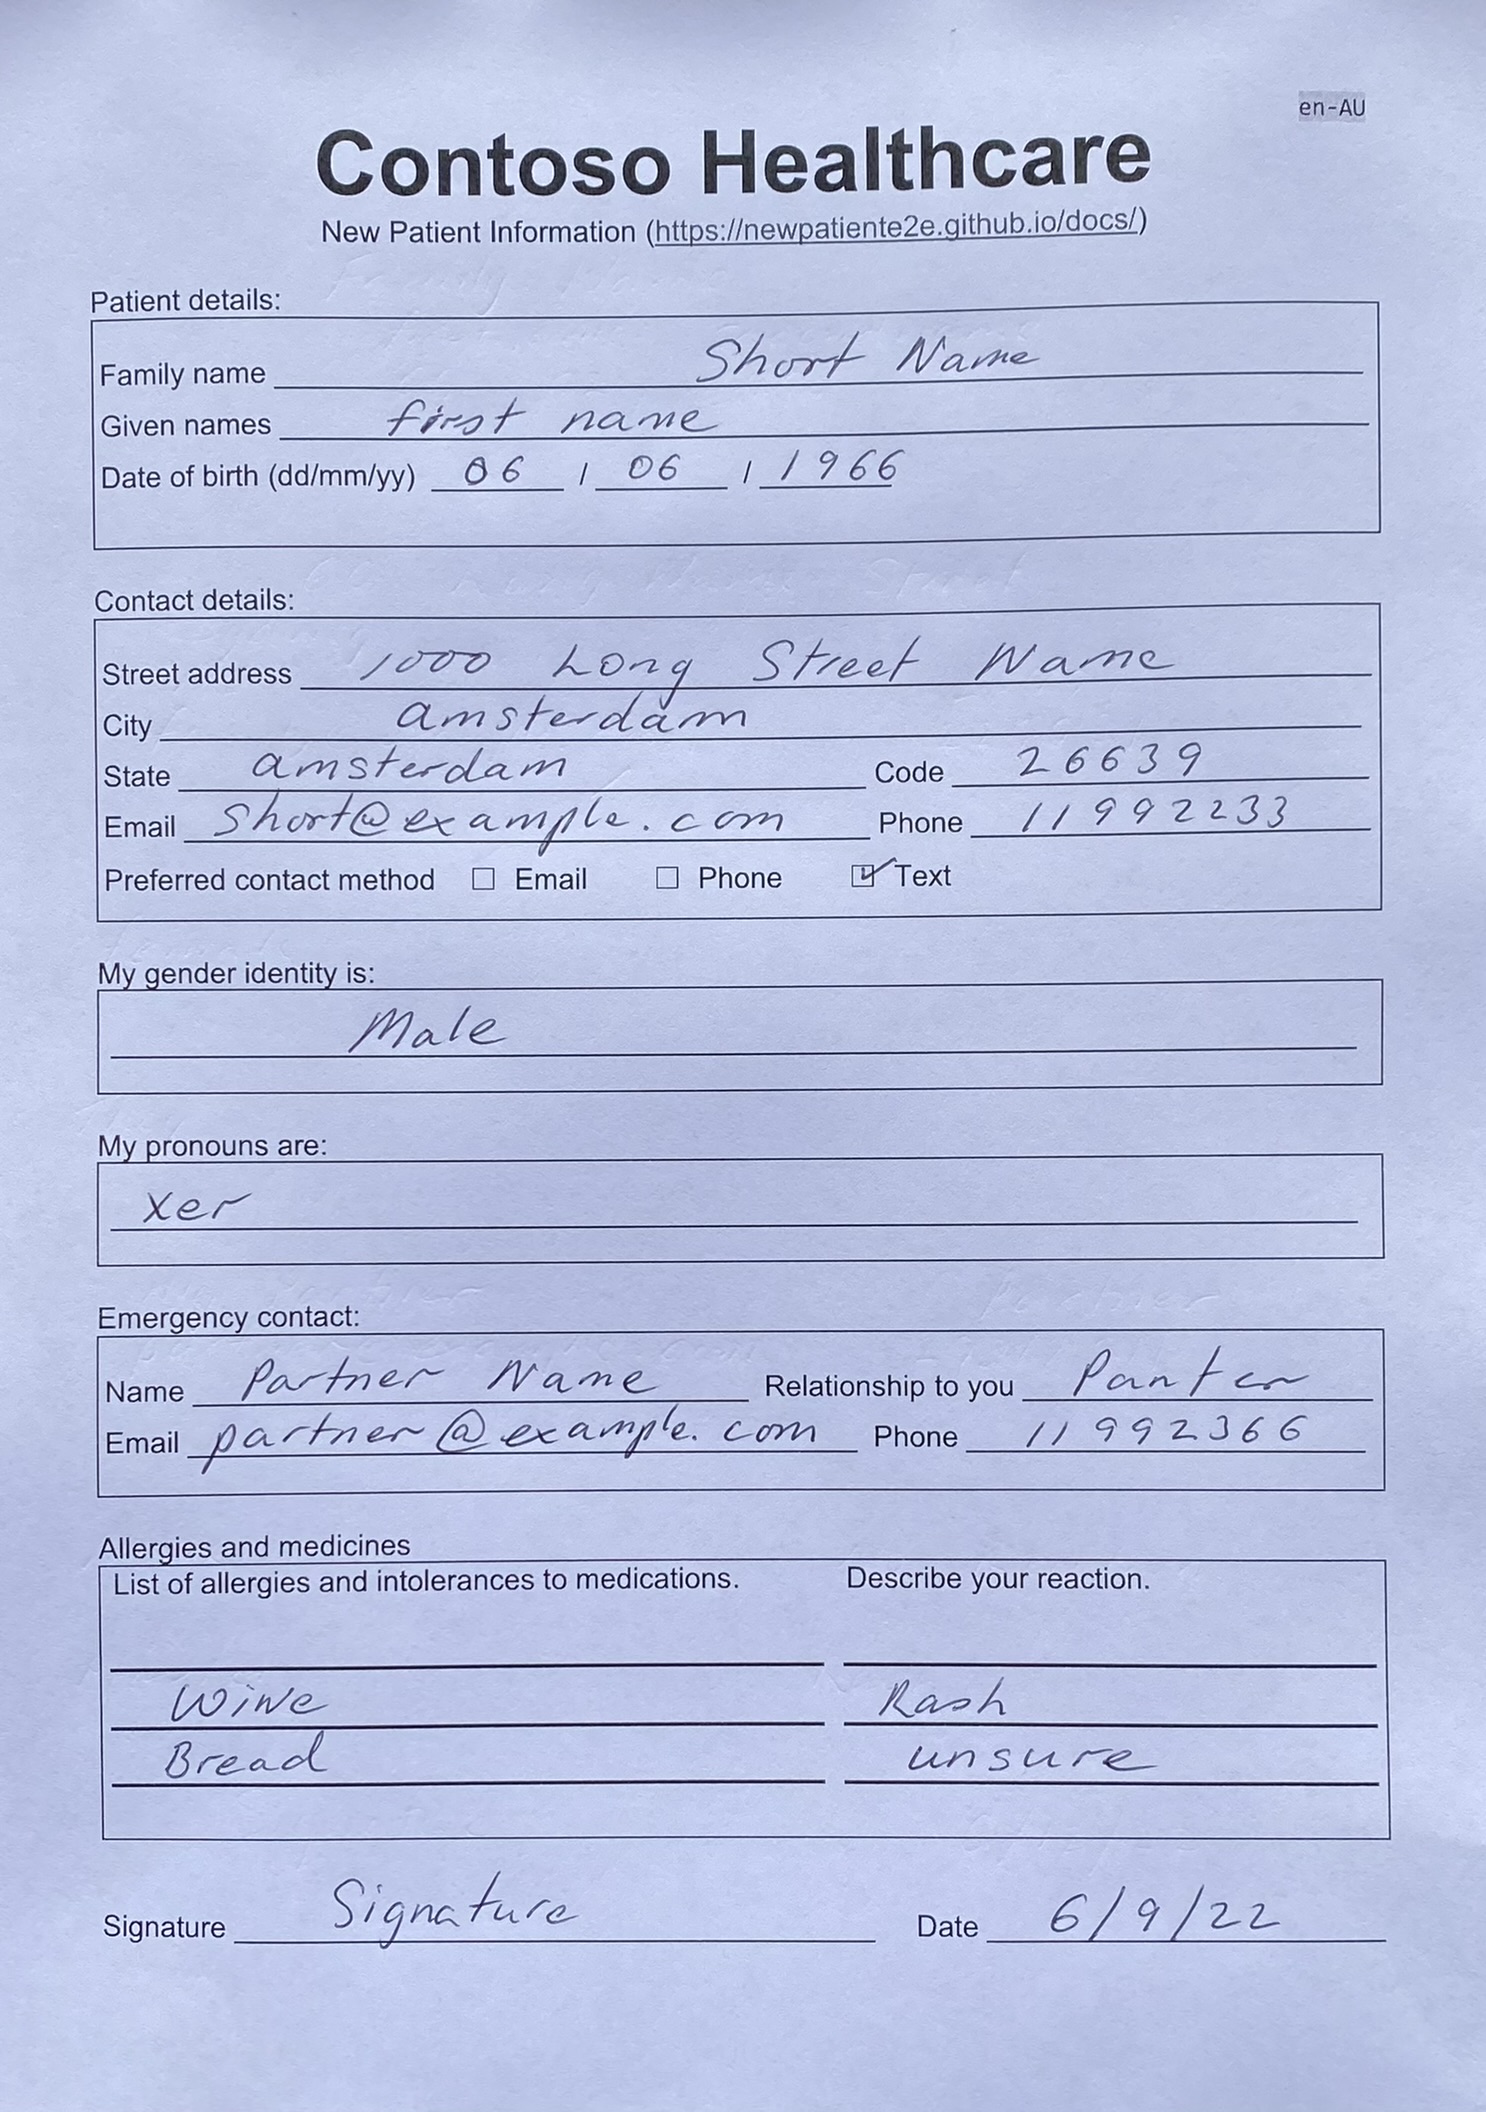 en-AU
Contoso Healthcare
New Patient Information (https://newpatiente2e.github.io/docs/)
Patient details:
Family name Short Name
Given names first name
Date of birth (dd/mm/yy) 06 / 06 / 1966
Contact details:
Street address 1000 Long Street Name
City amsterdam
State amsterdam Code 26639
Email short@example.com Phone 11992233
Preferred contact method ☐ Email ☐ Phone ☑ Text
My gender identity is:
Male
My pronouns are:
xer
Emergency contact:
Name Partner Name Relationship to you Panter
Email partner@example.com Phone 11992366
Allergies and medicines
List of allergies and intolerances to medications. Describe your reaction.
Wine Rash
Bread unsure
Signature Signature Date 6/9/22